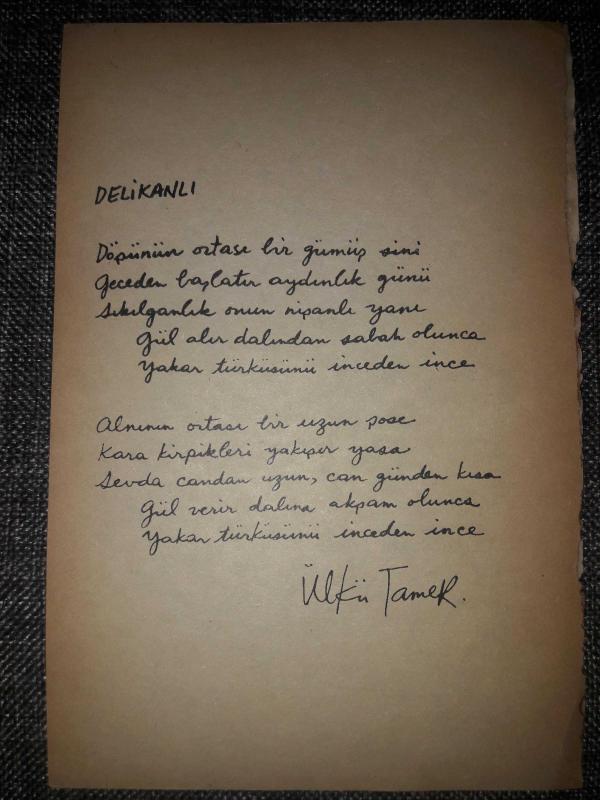 DELİKANLI
Döşünün ortası bir gümüş sini
Geceden başlatır aydınlık günü
Sıkılganlık onun nişanlı yanı
Gül alır dalından sabah olunca
Yakar türküsünü inceden ince
Alnının ortası bir uzun şose
Kara kirpikleri yakışır yasa
Sevda candan uzun, can günden kısa
Gül verir dalına akşam olunca
Yakar türküsünü inceden ince
Ülkü Tamer.